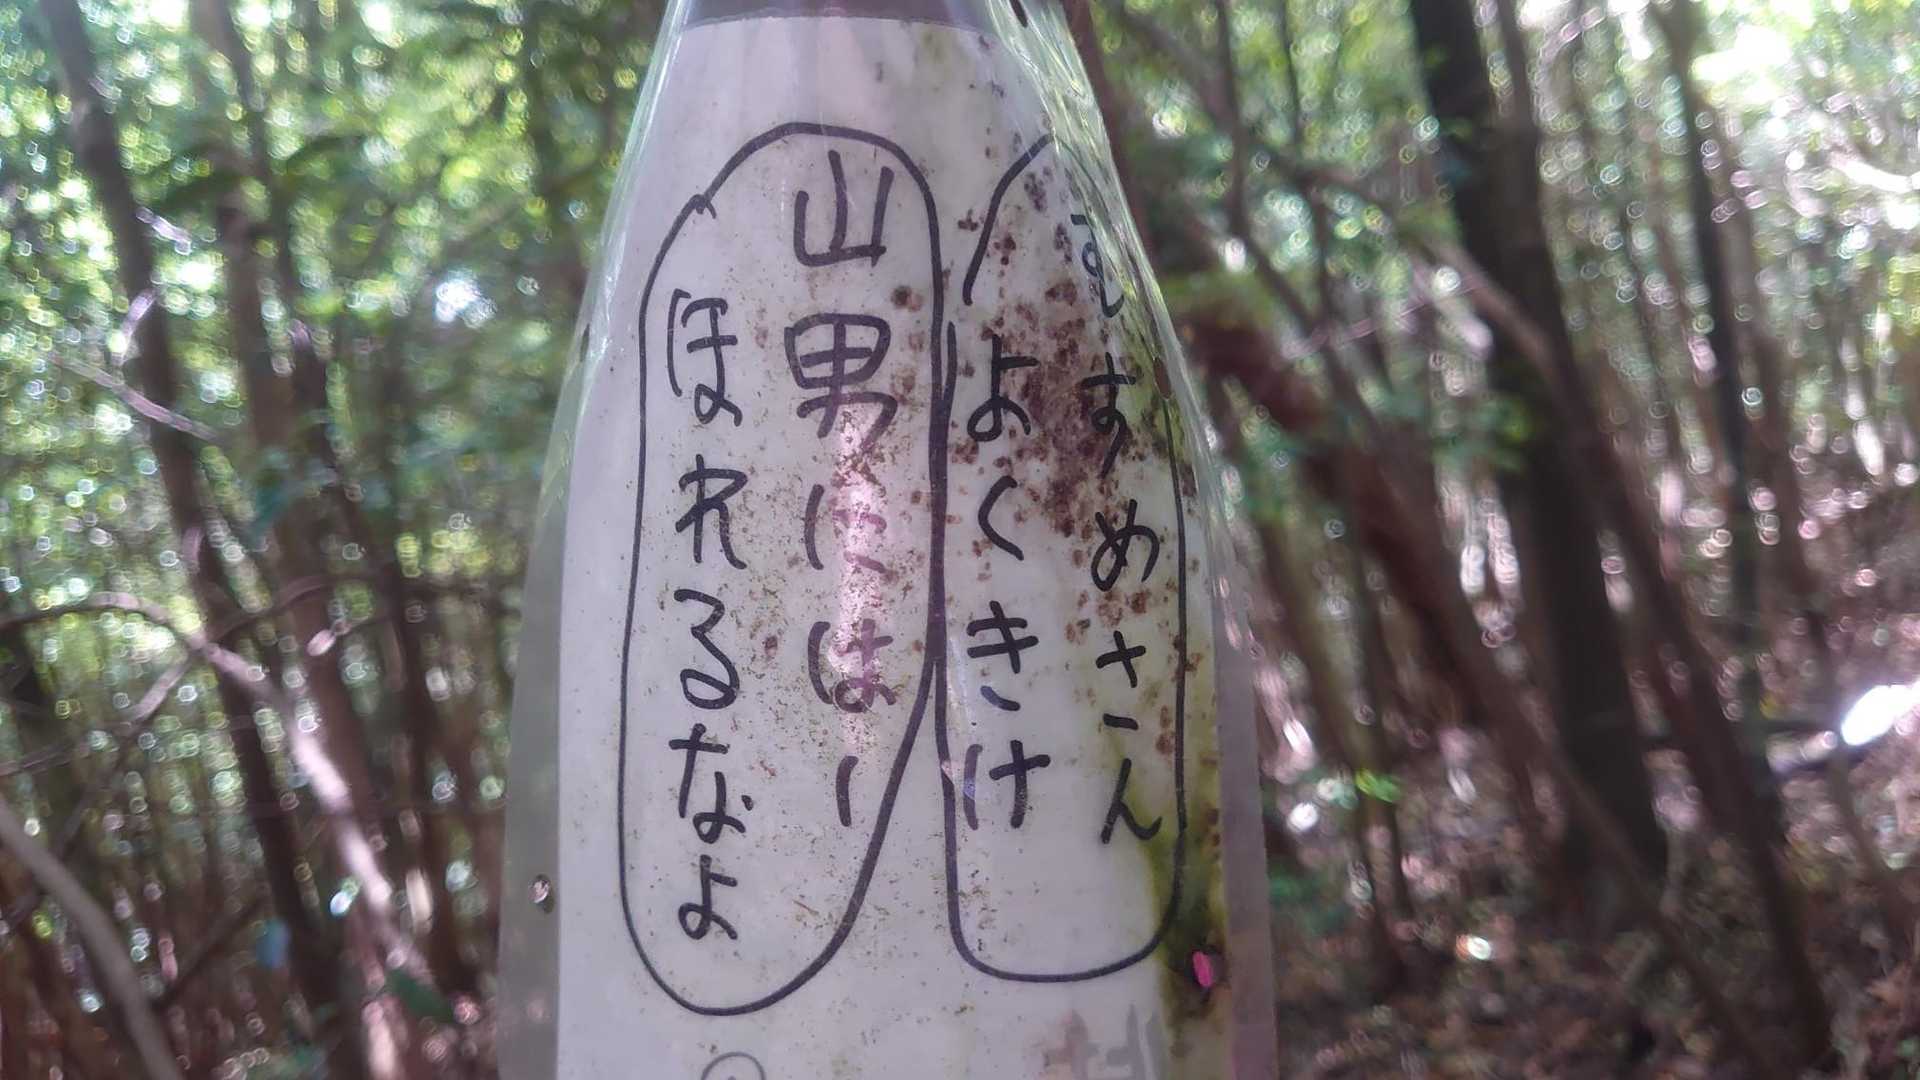 むすめさん
よくきけ
山男にはー
ほれるなよ